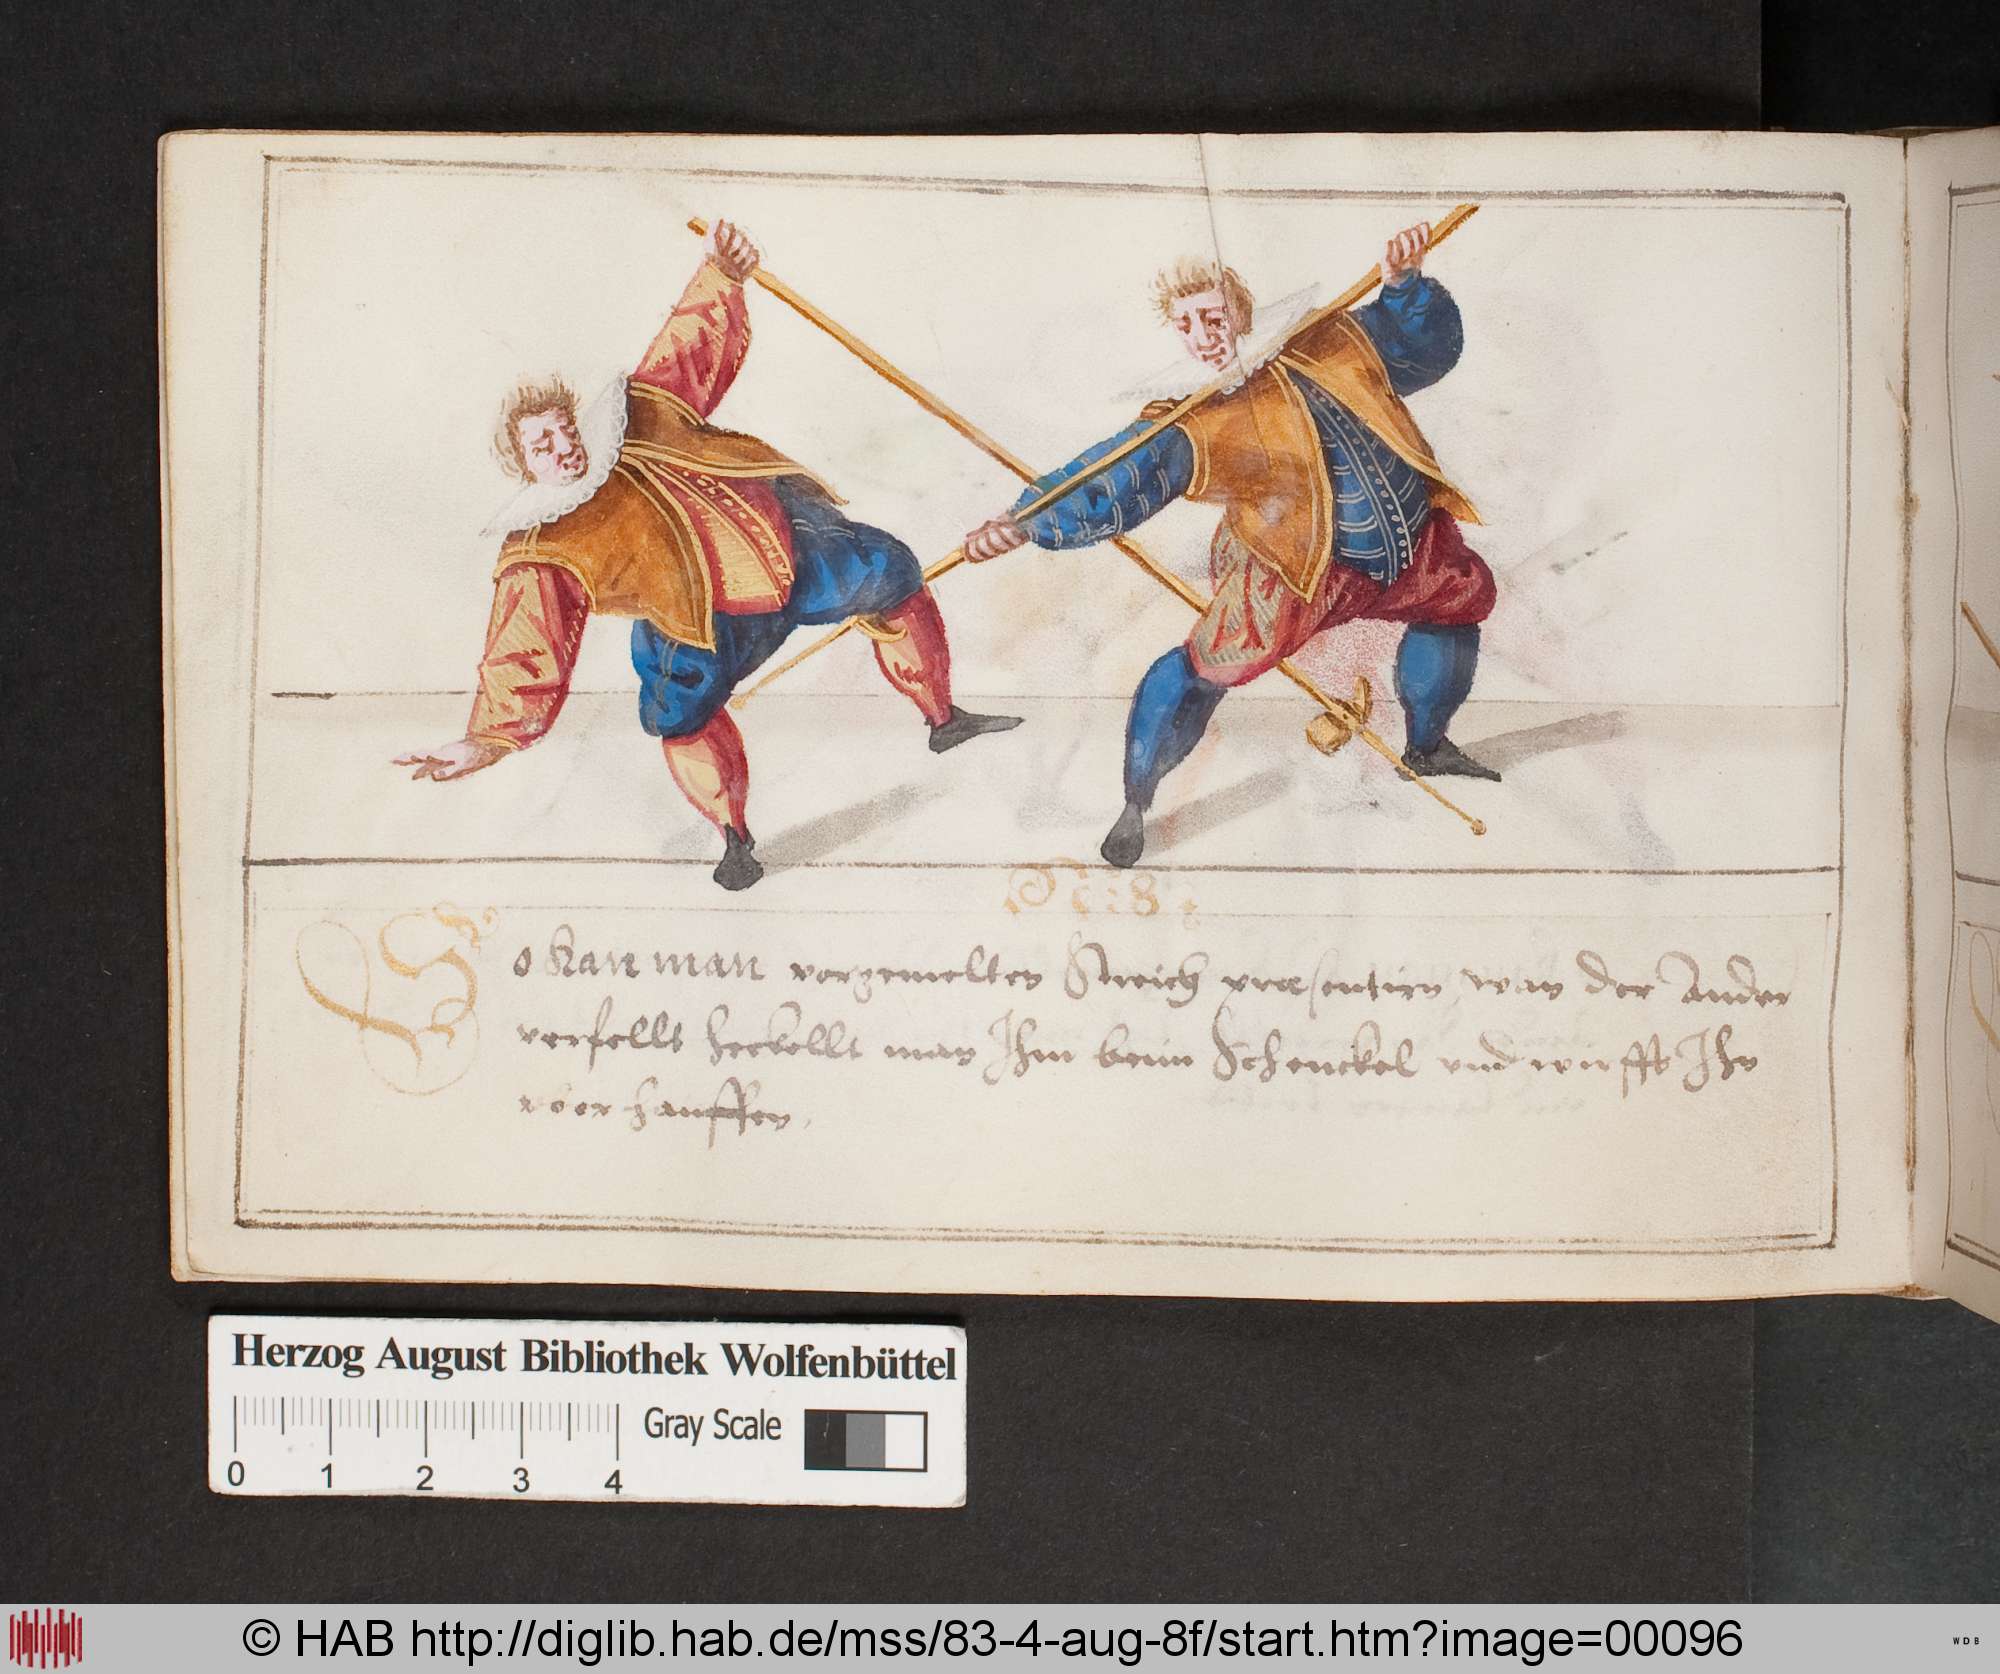 So Kan man vorgemelten Streich præsentirn, wan der Ander
verfellt heckellt man Ihm beim Schenckel und wirfft Ihn
vber hauffen.
Herzog August Bibliothek Wolfenbüttel
Gray Scale
0 1 2 3 4
© HAB http://diglib.hab.de/mss/83-4-aug-8f/start.htm?image=00096
WDB